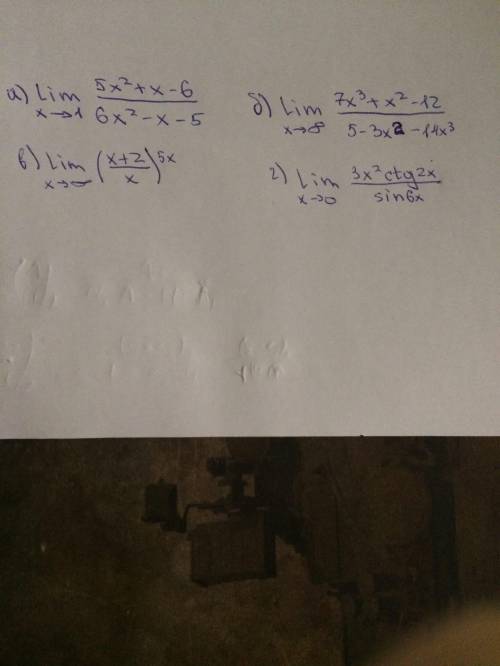 а) lim x→1 (5x²+x-6)/(6x²-x-5)
б) lim x→∞ (7x³+x²-12)/(5-3x2-14x³)
в) lim x→∞ ((x+2)/x)^5x
г) lim x→0 (3x²ctg2x)/(sin6x)